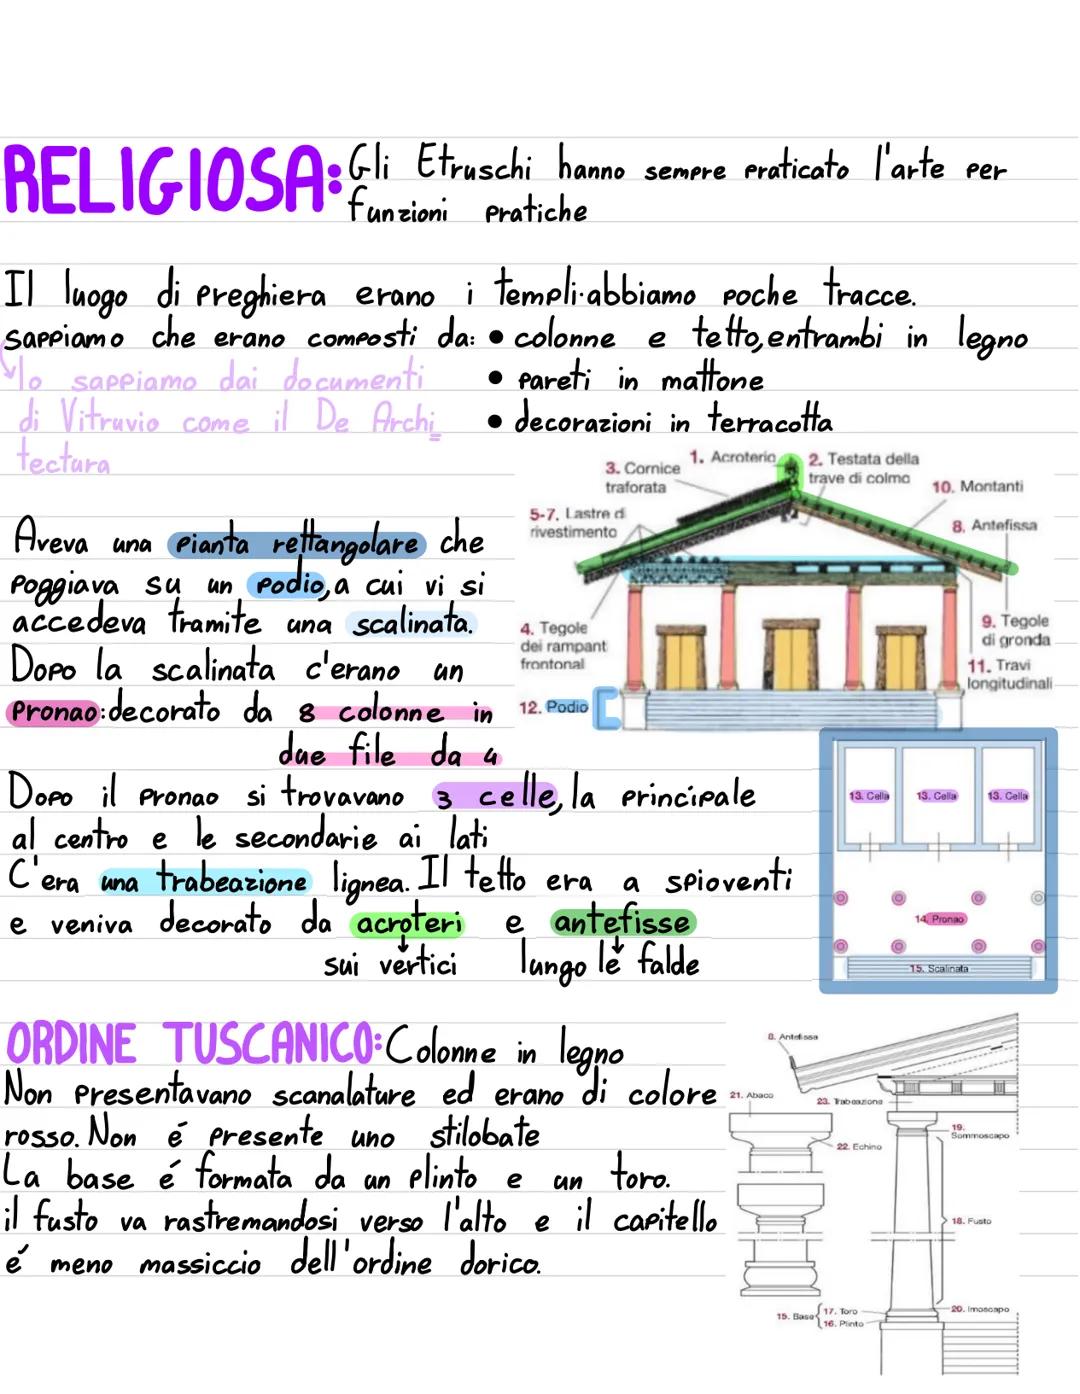 RELIGIOSA: Gli Etruschi hanno sempre praticato l'arte per
funzioni pratiche
Il luogo di preghiera erano i templi. abbiamo poche tracce.
sappiamo che erano composti da: • colonne e tetto, entrambi in legno
lo sappiamo dai documenti
di Vitruvio come il De Archi
tectura
• pareti in mattone
• decorazioni in terracotta
1. Acroterio
2. Testata della
trave di colmo
3. Cornice
traforata
10. Montanti
5-7. Lastre di
rivestimento
8. Antefissa
4. Tegole
dei rampanti
frontonal
9. Tegole
di gronda
11. Travi
longitudinali
12. Podio
Aveva una pianta rettangolare che
poggiava su un podio, a cui vi si
accedeva tramite una scalinata.
Dopo la scalinata c'erano un
Pronao: decorato da 8 colonne in
due file da 4
Dopo il pronao si trovavano 3 celle, la principale
al centro e le secondarie ai lati
C'era una trabeazione lignea. Il tetto era a spioventi
e veniva decorato da acroteri e antefisse
sui vertici lungo le falde
13. Cella 13. Cella 13. Cella
14. Pronao
15. Scalinata
ORDINE TUSCANICO: Colonne in legno
Non presentavano scanalature ed erano di colore
rosso. Non é presente uno stilobate
La base é formata da un plinto e un toro.
il fusto va rastremandosi verso l'alto e il capitello
é meno massiccio dell'ordine dorico.
8. Antefissa
21. Abaco
23. Trabeazione
19.
Sommoscapo
22. Echino
18. Fusto
20. Imoscapo
15. Base
17. Toro
16. Plinto